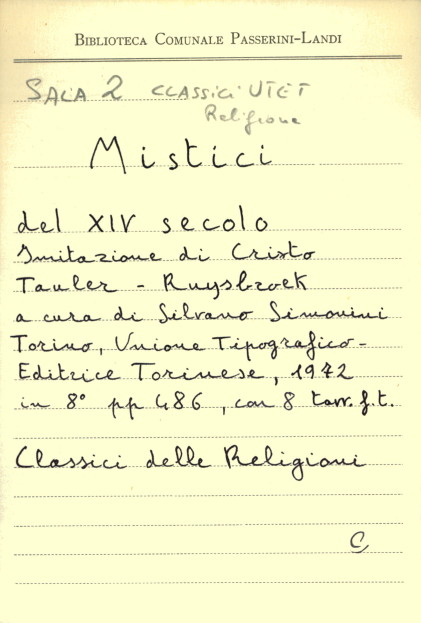 BIBLIOTECA COMUNALE PASSERINI-LANDI
SALA 2 CLASSICI UTET
Religione
Mistici
del XIV secolo
Imitazione di Cristo
Tauler - Ruysbroek
a cura di Silvano Simonini
Torino, Unione Tipografico-
Editrice Torinese, 1972
in 8° pp 486, con 8 tavv. f.t.
Classici delle Religioni
C